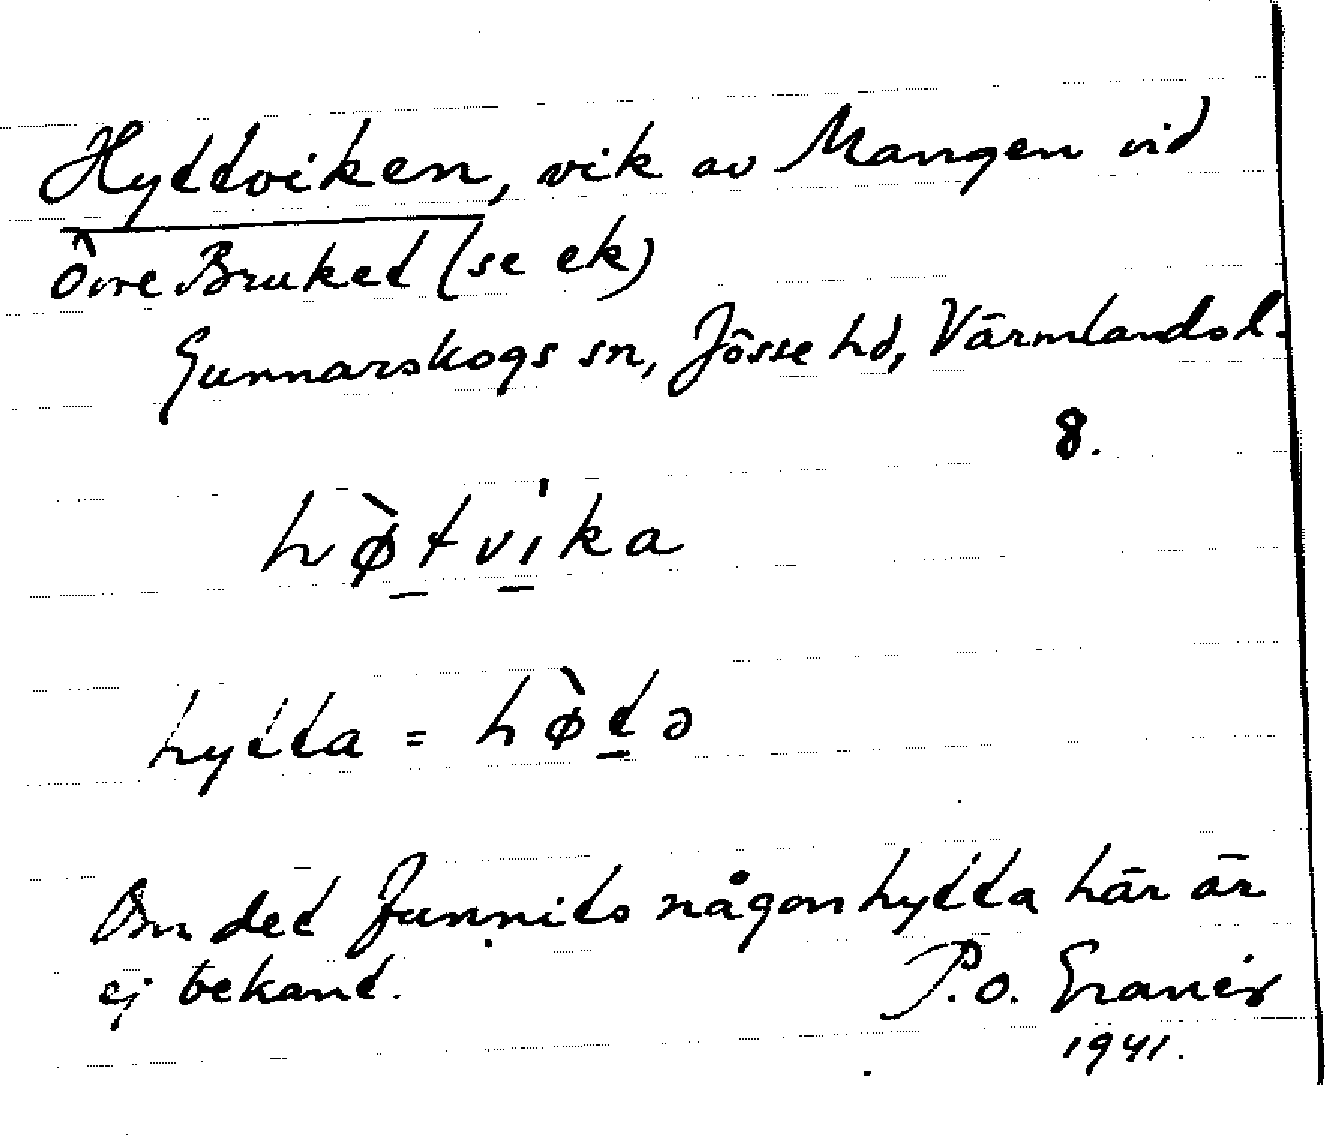 Hyttviken, vik av Mangen vid
Övre Bruket (se ek)
Gunnarskogs sn, Jösse hd, Värmlands l.
8.
hø̀tvi̍ka
hytta = hø̀tə
Om det funnits någon hytta här är
ej bekant.
P.O. Granér
1941.